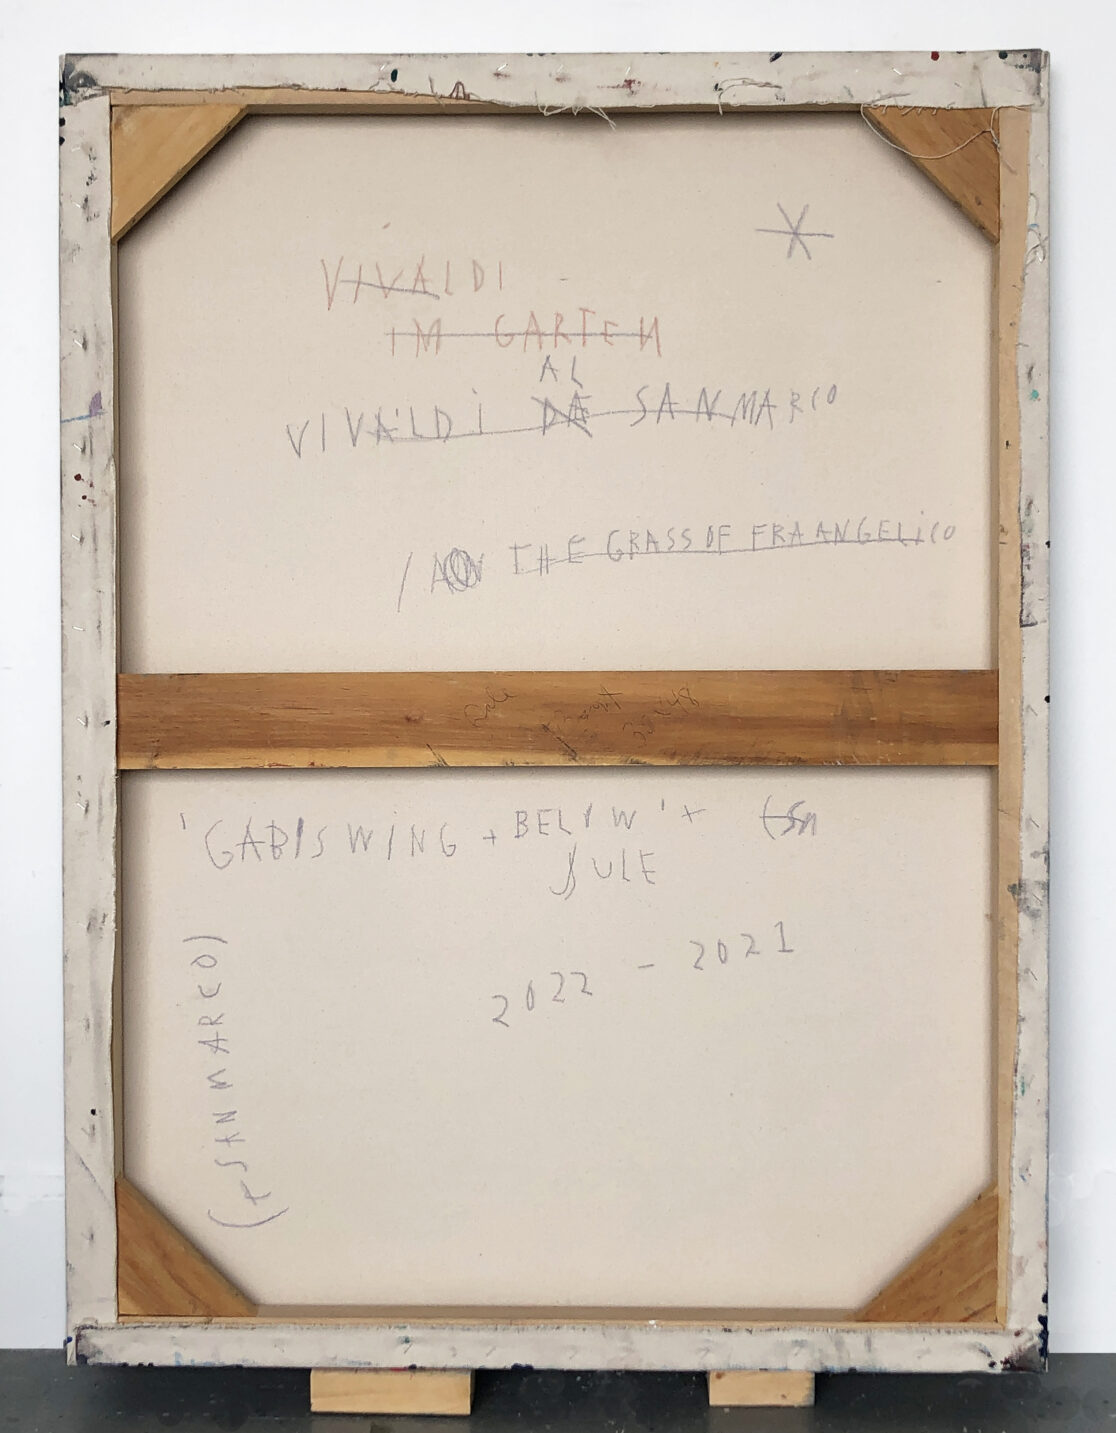 *
VIVALDI
IM GARTEN
AL
VIVALDI DA SAN MARCO
/ ON THE GRASS OF FRA ANGELICO
'GABIS WING + BELOW' +
JULE
2022 - 2021
(+ SAN MARCO)